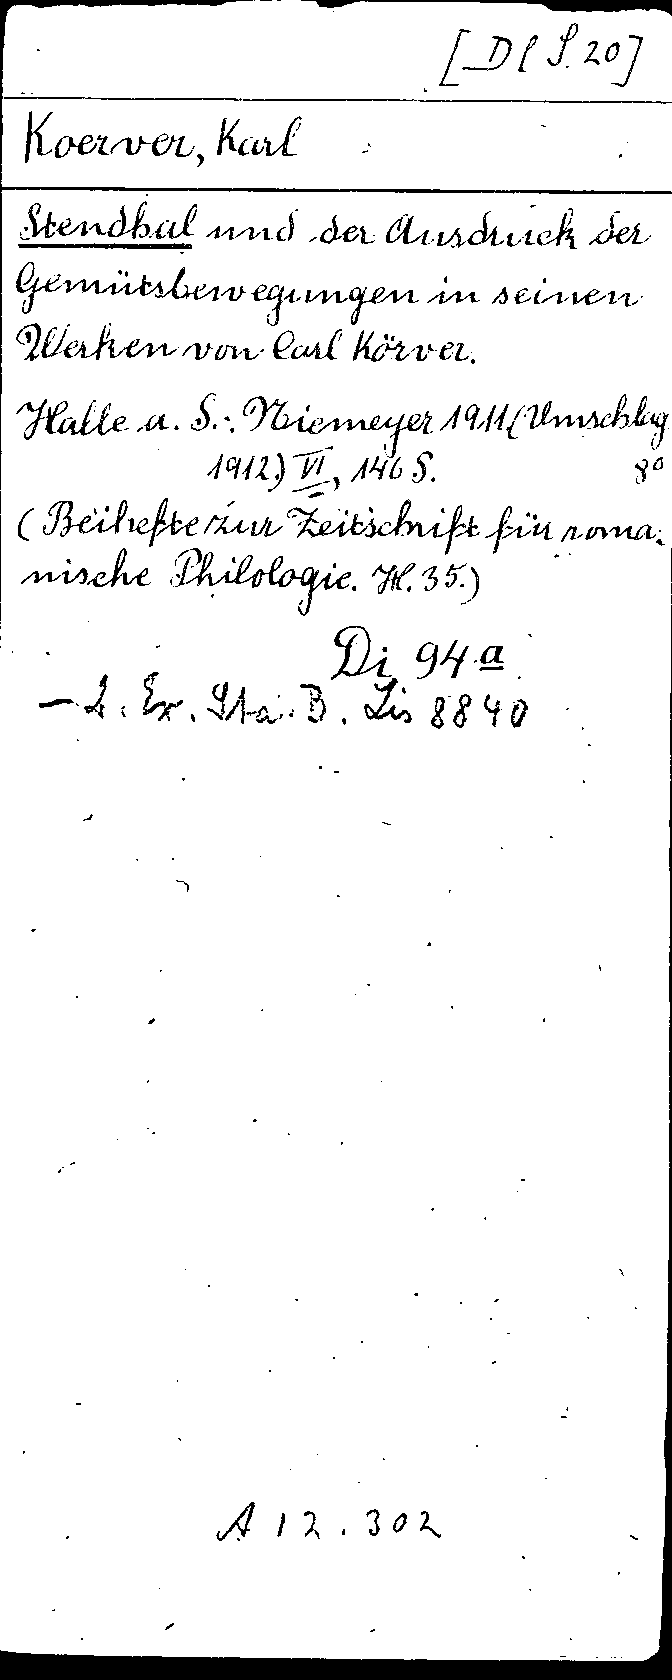 [D l S. 20]
Koerver, Karl
Stendhal und der Ausdruck der
Gemütsbewegungen in seinen
Werken von Carl Körver.
Halle a. S.: Niemeyer 1911 (Umschlag
1912) VI, 146 S. 8°
(Beihefte zur Zeitschrift für roma-
nische Philologie. H. 35.)
Di 94 a
– 2. Ex. Sta. B. Lis 8840
A 12.302